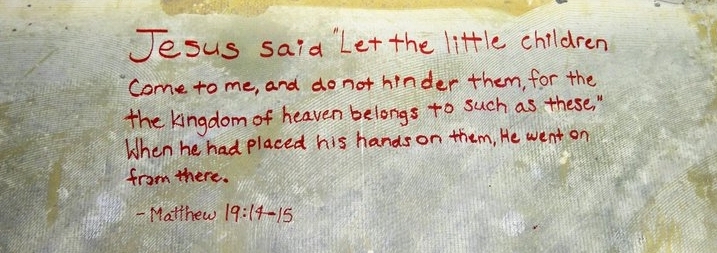 Jesus said "Let the little children
Come to me, and do not hinder them, for the
the kingdom of heaven belongs to such as these,"
When he had placed his hands on them, He went on
from there.
- Matthew 19:14-15